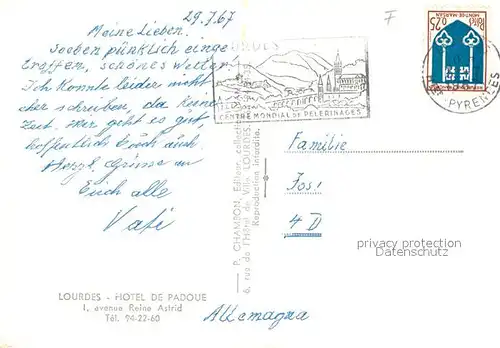 29.7.67
Meine Lieben.
Soeben pünktlich einge
troffen, schönes Wetter.
Ich konnte leider nicht
eher schreiben, da keine
Zeit. Hier geht es gut,
hoffentlich Euch auch.
Herzl. Grüsse an
Euch alle
Vati
LOURDES - HOTEL DE PADOUE
1, avenue Reine Astrid
Tél. 94-22-60
P. CHAMBON, Editeur, collection
6, rue de l'Hôtel de Ville, LOURDES
Reproduction interdite.
LOURDES
CENTRE MONDIAL DE PELERINAGES
F
0,25
MONT-DE-MARSAN
PYRENEES
Familie
Jos!
4 D
privacy protection
Datenschutz
Allemagna